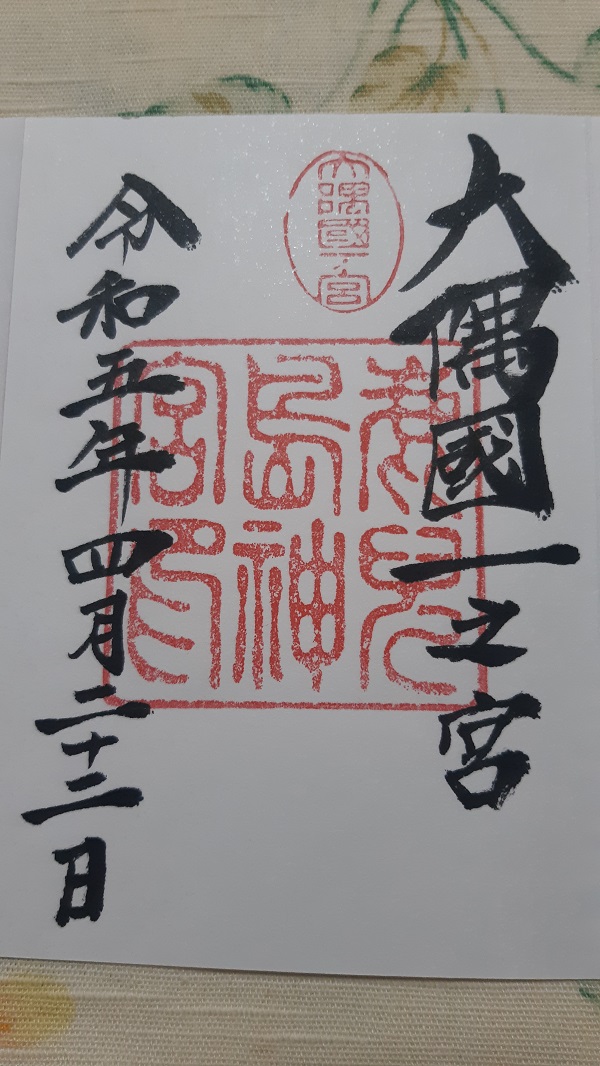 大隅國一之宮
大隅國一ノ宮
鹿兒
島神
宮印
令和五年四月二十二日